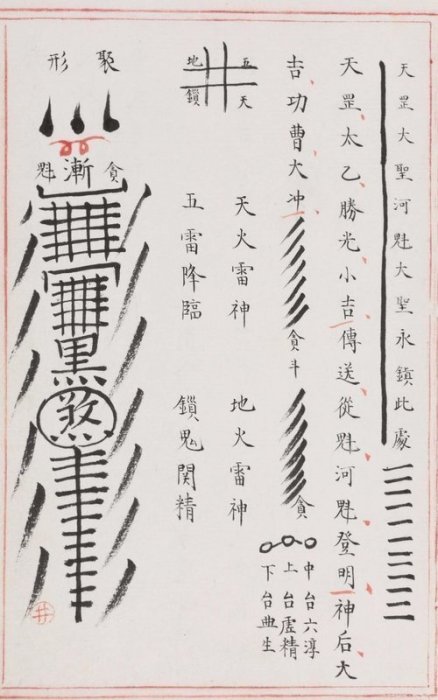 天罡大聖河魁大聖永鎮此處
天罡太乙勝光小吉傳送從魁河魁登明神后大
吉功曹大冲
貪斗
貪
中台六淳
上台虛精
下台曲生
五天
地鎖
天火雷神 地火雷神
五雷降臨 鎖鬼関精
聚形
貪漸魁
黒
煞